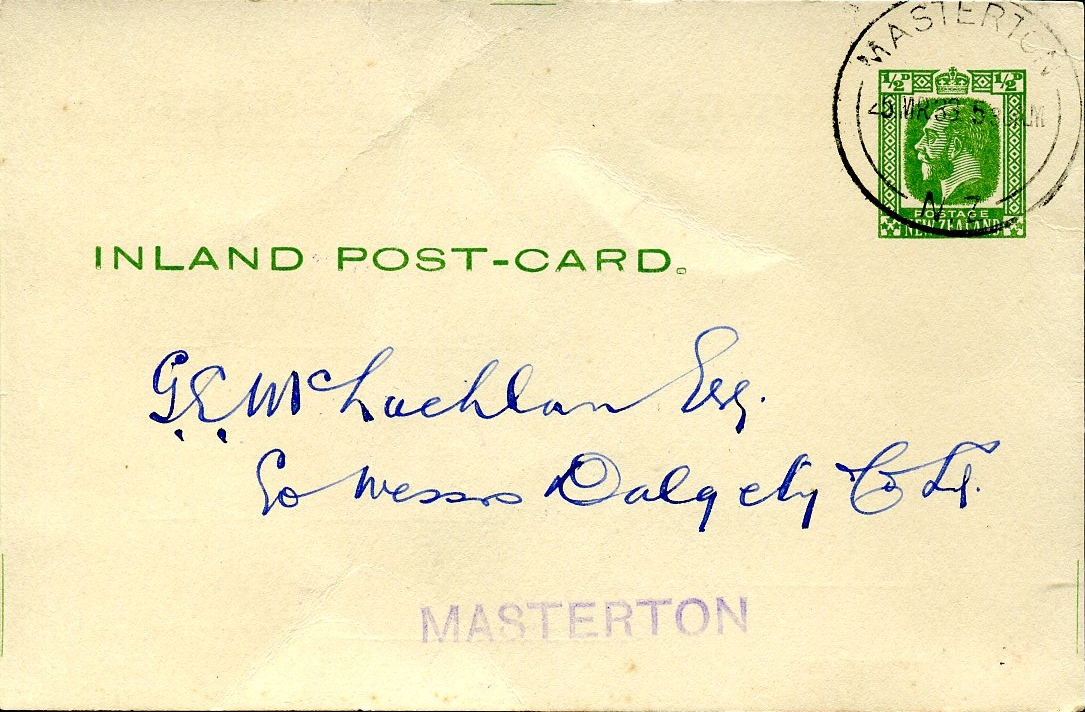 MASTERTON
½D ½D
MR 33 5
N.Z
POSTAGE
NEW ZEALAND
INLAND POST-CARD.
G E McLachlan Esq.
C/o Messrs Dalgety Co Ld.
MASTERTON